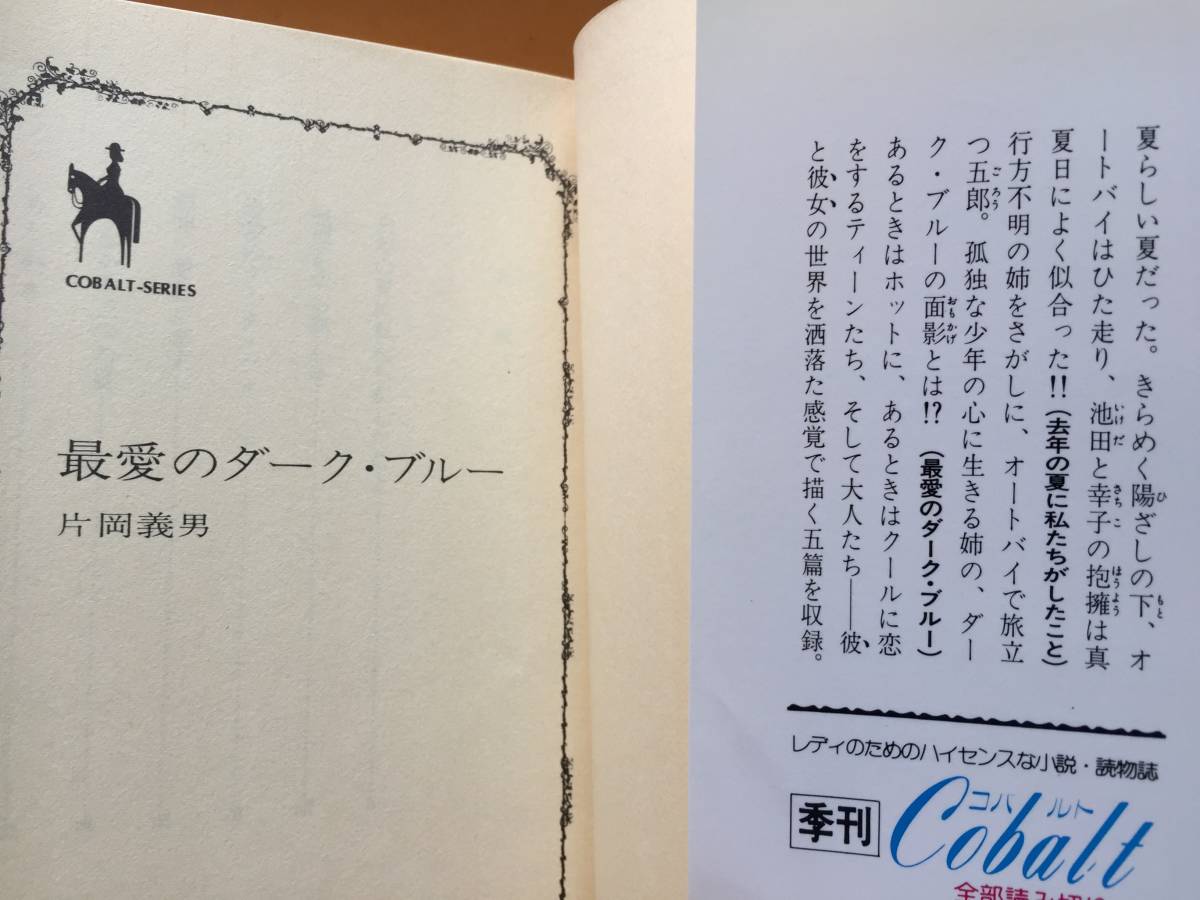 COBALT-SERIES
最愛のダーク・ブルー
片岡義男
夏らしい夏だった。きらめく陽ざしの下、オ
ートバイはひた走り、池田と幸子の抱擁は真
夏日によく似合った!!(去年の夏に私たちがしたこと)
行方不明の姉をさがしに、オートバイで旅立
つ五郎。孤独な少年の心に生きる姉の、ダー
ク・ブルーの面影とは!?(最愛のダーク・ブルー)
あるときはホットに、あるときはクールに恋
をするティーンたち、そして大人たち——彼
と彼女の世界を洒落た感覚で描く五篇を収録。
レディのためのハイセンスな小説・読物誌
季刊
コバルト
Cobalt
全部読み切り